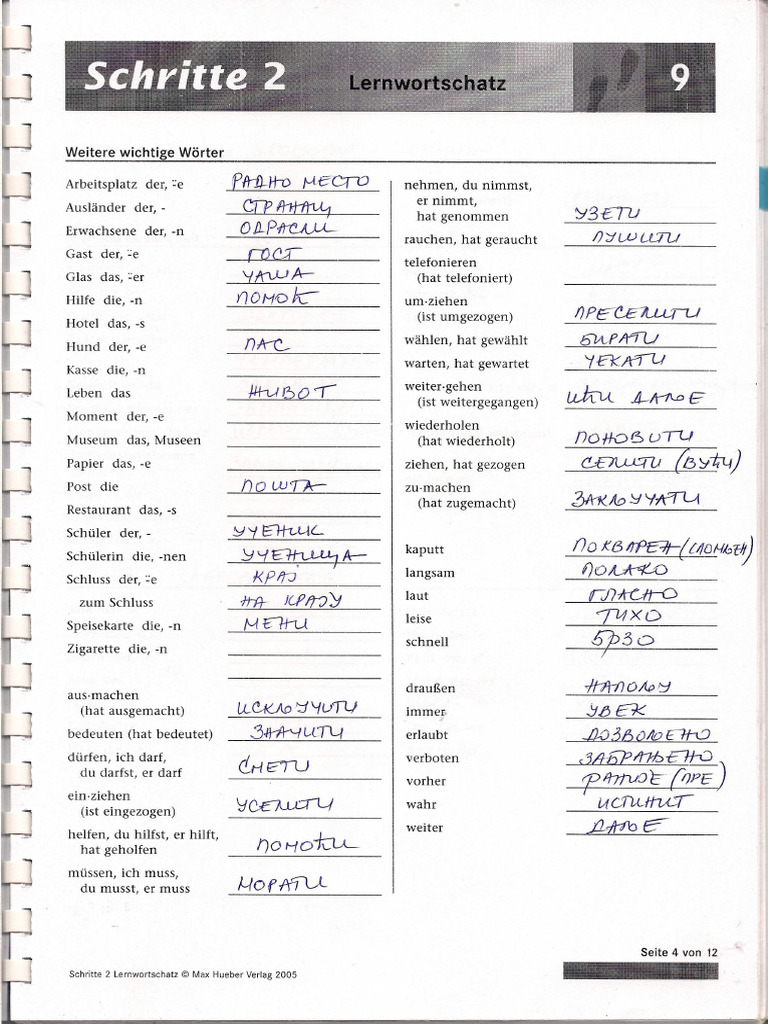 Schritte 2 Lernwortschatz 9
Weitere wichtige Wörter
Arbeitsplatz der, ¨-e РАДНО МЕСТО
Ausländer der, - СТРАНАЦ
Erwachsene der, -n ОДРАСЛИ
Gast der, ¨-e ГОСТ
Glas das, ¨-er ЧАША
Hilfe die, -n ПОМОЋ
Hotel das, -s
Hund der, -e ПАС
Kasse die, -n
Leben das ЖИВОТ
Moment der, -e
Museum das, Museen
Papier das, -e
Post die ПОШТА
Restaurant das, -s
Schüler der, - УЧЕНИК
Schülerin die, -nen УЧЕНИЦА
Schluss der, ¨-e КРАЈ
zum Schluss НА КРАЈУ
Speisekarte die, -n МЕНИ
Zigarette die, -n
aus·machen
(hat ausgemacht) ИСКЉУЧИТИ
bedeuten (hat bedeutet) ЗНАЧИТИ
dürfen, ich darf,
du darfst, er darf СМЕТИ
ein·ziehen
(ist eingezogen) УСЕЛИТИ
helfen, du hilfst, er hilft,
hat geholfen ПОМОЋИ
müssen, ich muss,
du musst, er muss МОРАТИ
nehmen, du nimmst,
er nimmt,
hat genommen УЗЕТИ
rauchen, hat geraucht ПУШИТИ
telefonieren
(hat telefoniert)
um·ziehen
(ist umgezogen) ПРЕСЕЛИТИ
wählen, hat gewählt БИРАТИ
warten, hat gewartet ЧЕКАТИ
weiter·gehen
(ist weitergegangen) ИЋИ ДАЉЕ
wiederholen
(hat wiederholt) ПОНОВИТИ
ziehen, hat gezogen СЕЛИТИ (ВУЋИ)
zu·machen
(hat zugemacht) ЗАКЉУЧАТИ
kaputt ПОКВАРЕН (СЛОМЉЕН)
langsam ПОЛАКО
laut ГЛАСНО
leise ТИХО
schnell БРЗО
draußen НАПОЉУ
immer УВЕК
erlaubt ДОЗВОЉЕНО
verboten ЗАБРАЊЕНО
vorher РАНИЈЕ (ПРЕ)
wahr ИСТИНИТ
weiter ДАЉЕ
Seite 4 von 12
Schritte 2 Lernwortschatz © Max Hueber Verlag 2005